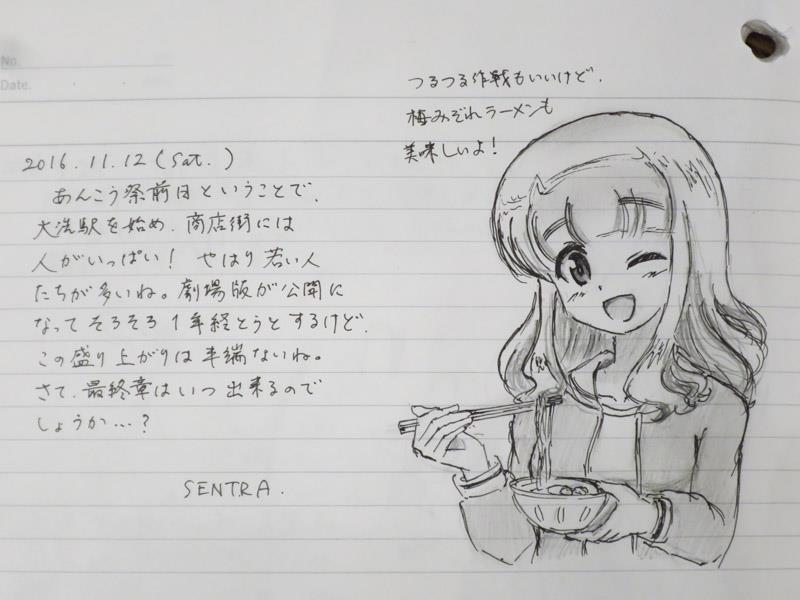 No.
Date.
つるつる作戦もいいけど.
梅みぞれラーメンも
美味しいよ!
2016.11.12(Sat.)
あんこう祭前日ということで.
大洗駅を始め.商店街には
人がいっぱい! やはり若い人
たちが多いね。劇場版が公開に
なってそろそろ1年経とうとするけど.
この盛り上がりは半端ないね。
さて.最終章はいつ出来るので
しょうか…?
SENTRA.